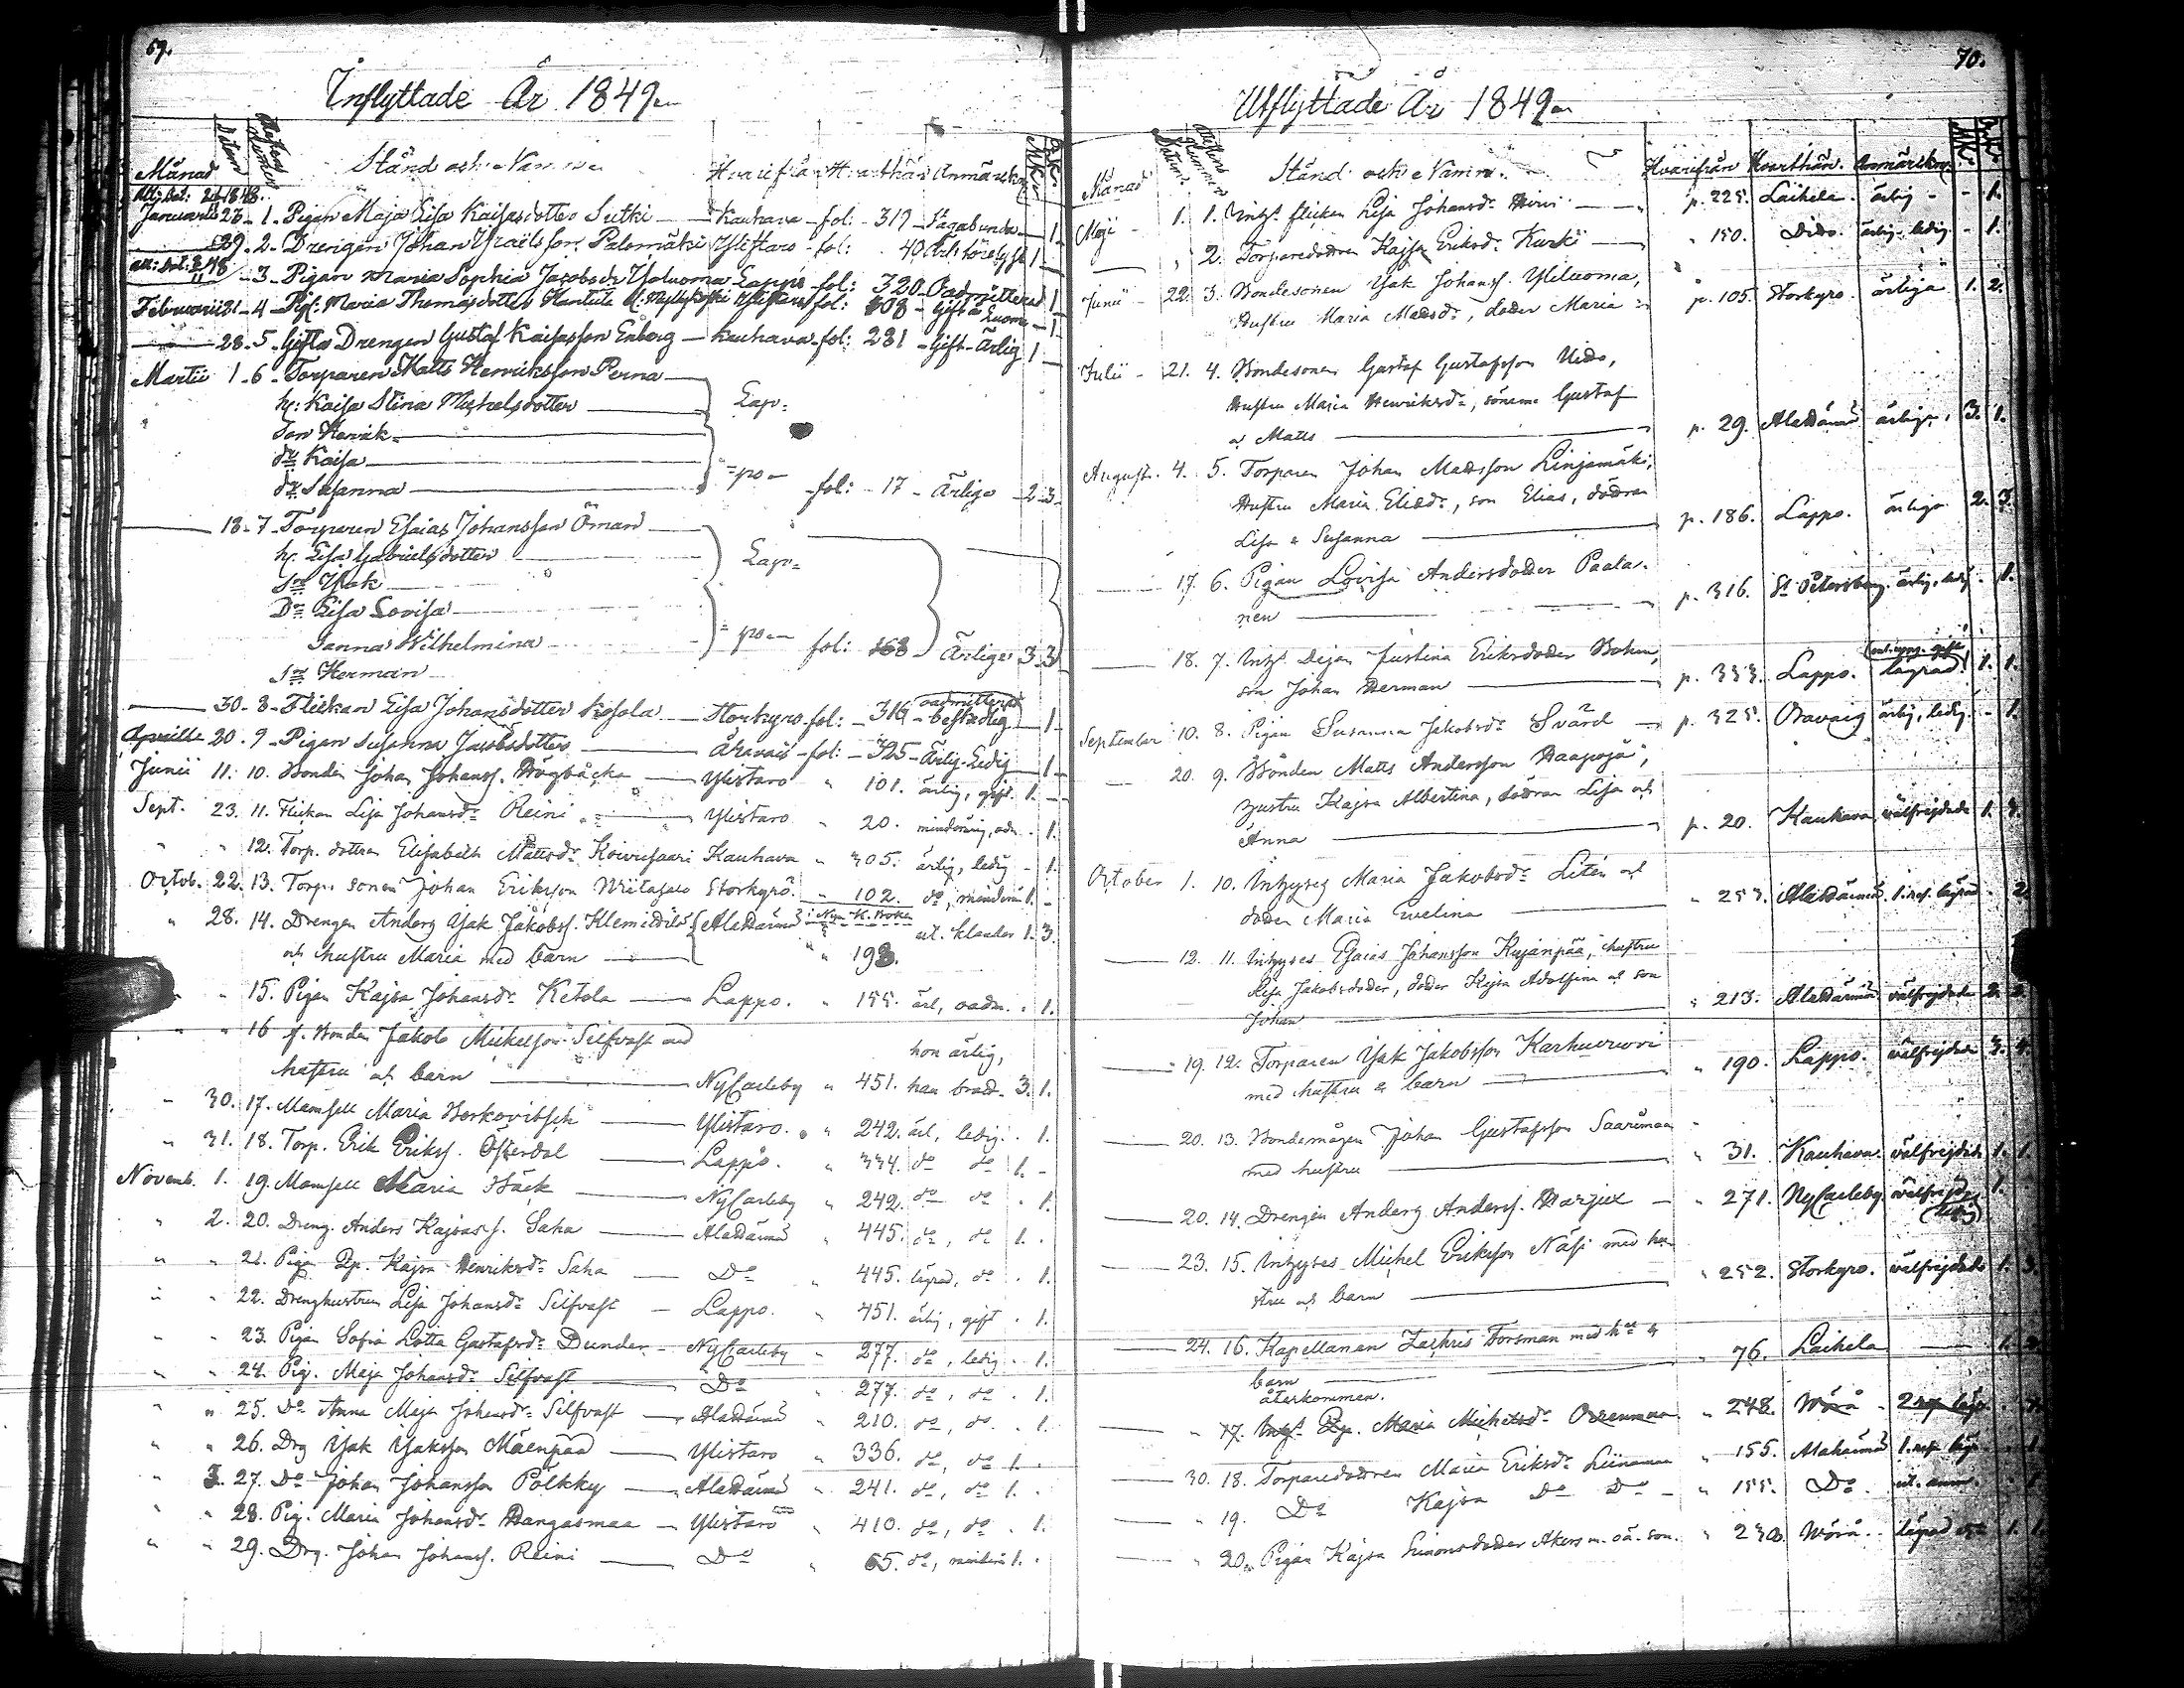 69.
Inflyttade År 1849
Månad Datum Attestens Nummer Stånd och Namn Hvarifrån Hvarthän Anmärkn. M.K. Q.K.
Att: Dat: 1848.
Januarii 23 - 1 - Pigan Maja Lisa Kaisasdotter Sutki - Kauhava - fol: - 319 - Vagabunda - 1
29 - 2 - Drengen Johan Israelsson Palomäki Ylistaro - fol: 40 1
3 - Pigan Maria Sophia Jacobsdr Lappo - fol: 320 - Oadmitterad 1
Februarii 21 - 4 - Maria Thomasdotter fol: 308 - Gift 1
28 - 5 - Gifta Drengen Gustaf Kaisasson Enberg - Kauhava - fol: 281 - Gift - Ärlig 1
Martii 1 - 6 - Torparen Matts Henriksson Perna
h: Kaisa Stina Michelsdotter Lap=
Son Henrik
dr Kaisa
dr Susanna =po - fol: - 17 - Ärliga - 2 - 3
18 - 7 - Torparen Esaias Johansson Öman
h: Lisa Gabrielsdotter Lap=
Sn Isak
Dr Lisa Lovisa
Sanna Wilhelmina =po fol: 168 Ärliga 3 3
Sn Herman
30 - 8 - Flickan Lisa Johansdotter Kosola - Storkyro - fol: - 316 oadmitterad - beskedlig 1
Aprilis 20 - 9 - Pigan Susanna Jacobsdotter - Åravais - fol: - 325 - Ärlig - Ledig 1
Junii 11. 10. Bonden Johan Johanss. Högbacka - Ylistaro " 101. ärlig, gift. 1.
Sept. 23. 11. Flickan Lisa Johansdr Reini - Ylistaro " 20. minderårig, oadm. 1.
" " 12. Torp. dottren Elisabeth Mattsdr Koivusaari Kauhava " 305. ärlig, ledig - 1.
Octob. 22. 13. Torp. sonen Johan Eriksson Storkyro. " 102. do, minderår 1. -
" 28. 14. Drengen Anders Isak Jakobss. Klemetilä Alahärmä Nya K. Boken ut. klander 1. 3.
och hustru Maria med barn " 193.
" " 15. Pigan Kajsa Johansdr Ketola - Lappo. " 155. ärl, oadm. 1.
" " 16 f. Bonden Jakob Mickelson Silfvast med hon ärlig,
hustru och barn - NyCarleby " 451. han brad. 3. 1.
" 30. 17. Mamsell Maria Borkovitsch - Ylistaro. " 242. ärl, ledig. 1.
" 31. 18. Torp. Erik Erikss. Österdal - Lappo. " 334. do do 1. -
Novemb. 1. 19. Mamsell Maria Bäck - NyCarleby " 242. do do 1.
" 2. 20. Dreng. Anders Kajsass. Saha - Alahärmä " 445. do, do 1.
" " 21. Pigan Kajsa Henriksdr Saha - Do " 445. lägrad, do 1.
" " 22. Drenghustrun Lisa Johansdr Silfvast - Lappo. " 451. ärlig, gift 1.
" " 23. Pigan Sofia Lotta Gustafsdr Dunder - NyCarleby " 277. do, ledig 1.
" " 24. Pig. Maja Johansdr Silfvast - Do " 277. do, do. 1.
" " 25. Do Anna Maja Johansdr Silfvast - Alahärmä " 210. do, do. 1.
" " 26. Drg Isak Isaksson Mäenpää - Ylistaro " 336. do, do 1.
" 3. 27. Do Johan Johansson Pölkky - Alahärmä " 241. do, do 1.
" " 28. Pig. Maria Johansdr Hangasmaa - Ylistaro " 410. do, do 1.
" " 29. Drg. Johan Johanss. Reini - Do " 65. do, minderå 1.
70.
Utflyttade År 1849
Månad Datum Attestens Nummer Stånd och Namn. Hvarifrån Hvarthän. Anmärkn. M.K. Q.K.
Maji - 1. 1. Inhs flickan Lisa Johansdr Hirvi - p. 225. Laihela. ärlig - - 1.
" 2. Torparedottren Kajsa Eriksdr Kurki - " 150. Dito. ärlig, ledig - 1.
Junii - 22. 3. Bondesonen Isak Johanss. Yliluoma, p. 105. Storkyro. ärliga 1. 2.
Hustru Maria Mattsdr, dotter Maria
Julii - 21. 4. Bondesonen Gustaf Gustafsson
Hustru Maria Henriksdr, sönerne Gustaf
o Matts - p. 29. Alahärmä ärliga. 3. 1.
August. 4. 5. Torparen Johan Mattsson Linjamäki,
Hustru Maria Eliedr, son Elias, döttrar
Lisa o Susanna - p. 186. Lappo. ärliga 2. 3.
17. 6. Pigan Lovisa Andersdotter Paala-
nen - p. 316. St Petersburg. ärlig, ledig - 1.
18. 7. Inhs Pigan Justina Eriksdotter Bohm,
son Johan Herman - p. 333. Lappo. lägrad 1. 1.
September 10. 8. Pigan Susanna Jakobsdr Svärd - p. 325. Oravais ärlig, ledig - 1.
20. 9. Bonden Matts Andersson Haapoja,
hustru Kajsa Albertina, döttrar Lisa och
Anna - p. 20. Kauhava välfrejdade 1. 3.
October 1. 10. Inhyses Maria Jakobsdr Litén och
dotter Maria Evelina - " 253. Alahärmä. 1. res. lägrad - 2.
12. 11. Inhyses Esaias Johansson Kujanpää, hustru
Lisa Jakobsdotter, dotter Kajsa Adolfina och son
Johan - " 213. Alahärmä välfrejdade 2. 2.
19. 12. Torparen Isak Jakobsson Karhuvuori
med hustru o barn - " 190. Lappo. välfrejdade 3. 4.
20. 13. Bondemågen Johan Gustafsson Saarimaa
med hustru - " 31. Kauhava. välfrejdade 1. 1.
20. 14. Drengen Anders Anderss. Harjux - " 271. NyCarleby. välfrejdad 1.
(ledig)
23. 15. Inhyses Michel Eriksson Näsi med hu-
stru och barn - " 252. Storkyro. välfrejdade 1. 3.
24. 16. Kapellanen Zachris Forsman med hu &
barn - " 76. Laihela - 1.
återkommen.
" 17. Inhs Maria Michelsdr " 248. Wörå - 2 res. lägr
30. 18. Torparedottren Maria Eriksdr Liinamaa " 155. Alahärmä 1. res. lägr. 1.
" 19. Do Kajsa Do Do - " 155. Do. ut. anm. 1.
" 20. Pigan Kajsa Simonsdotter Akers m. oä. son. " 230. Wörå. lägrad 1. 1.